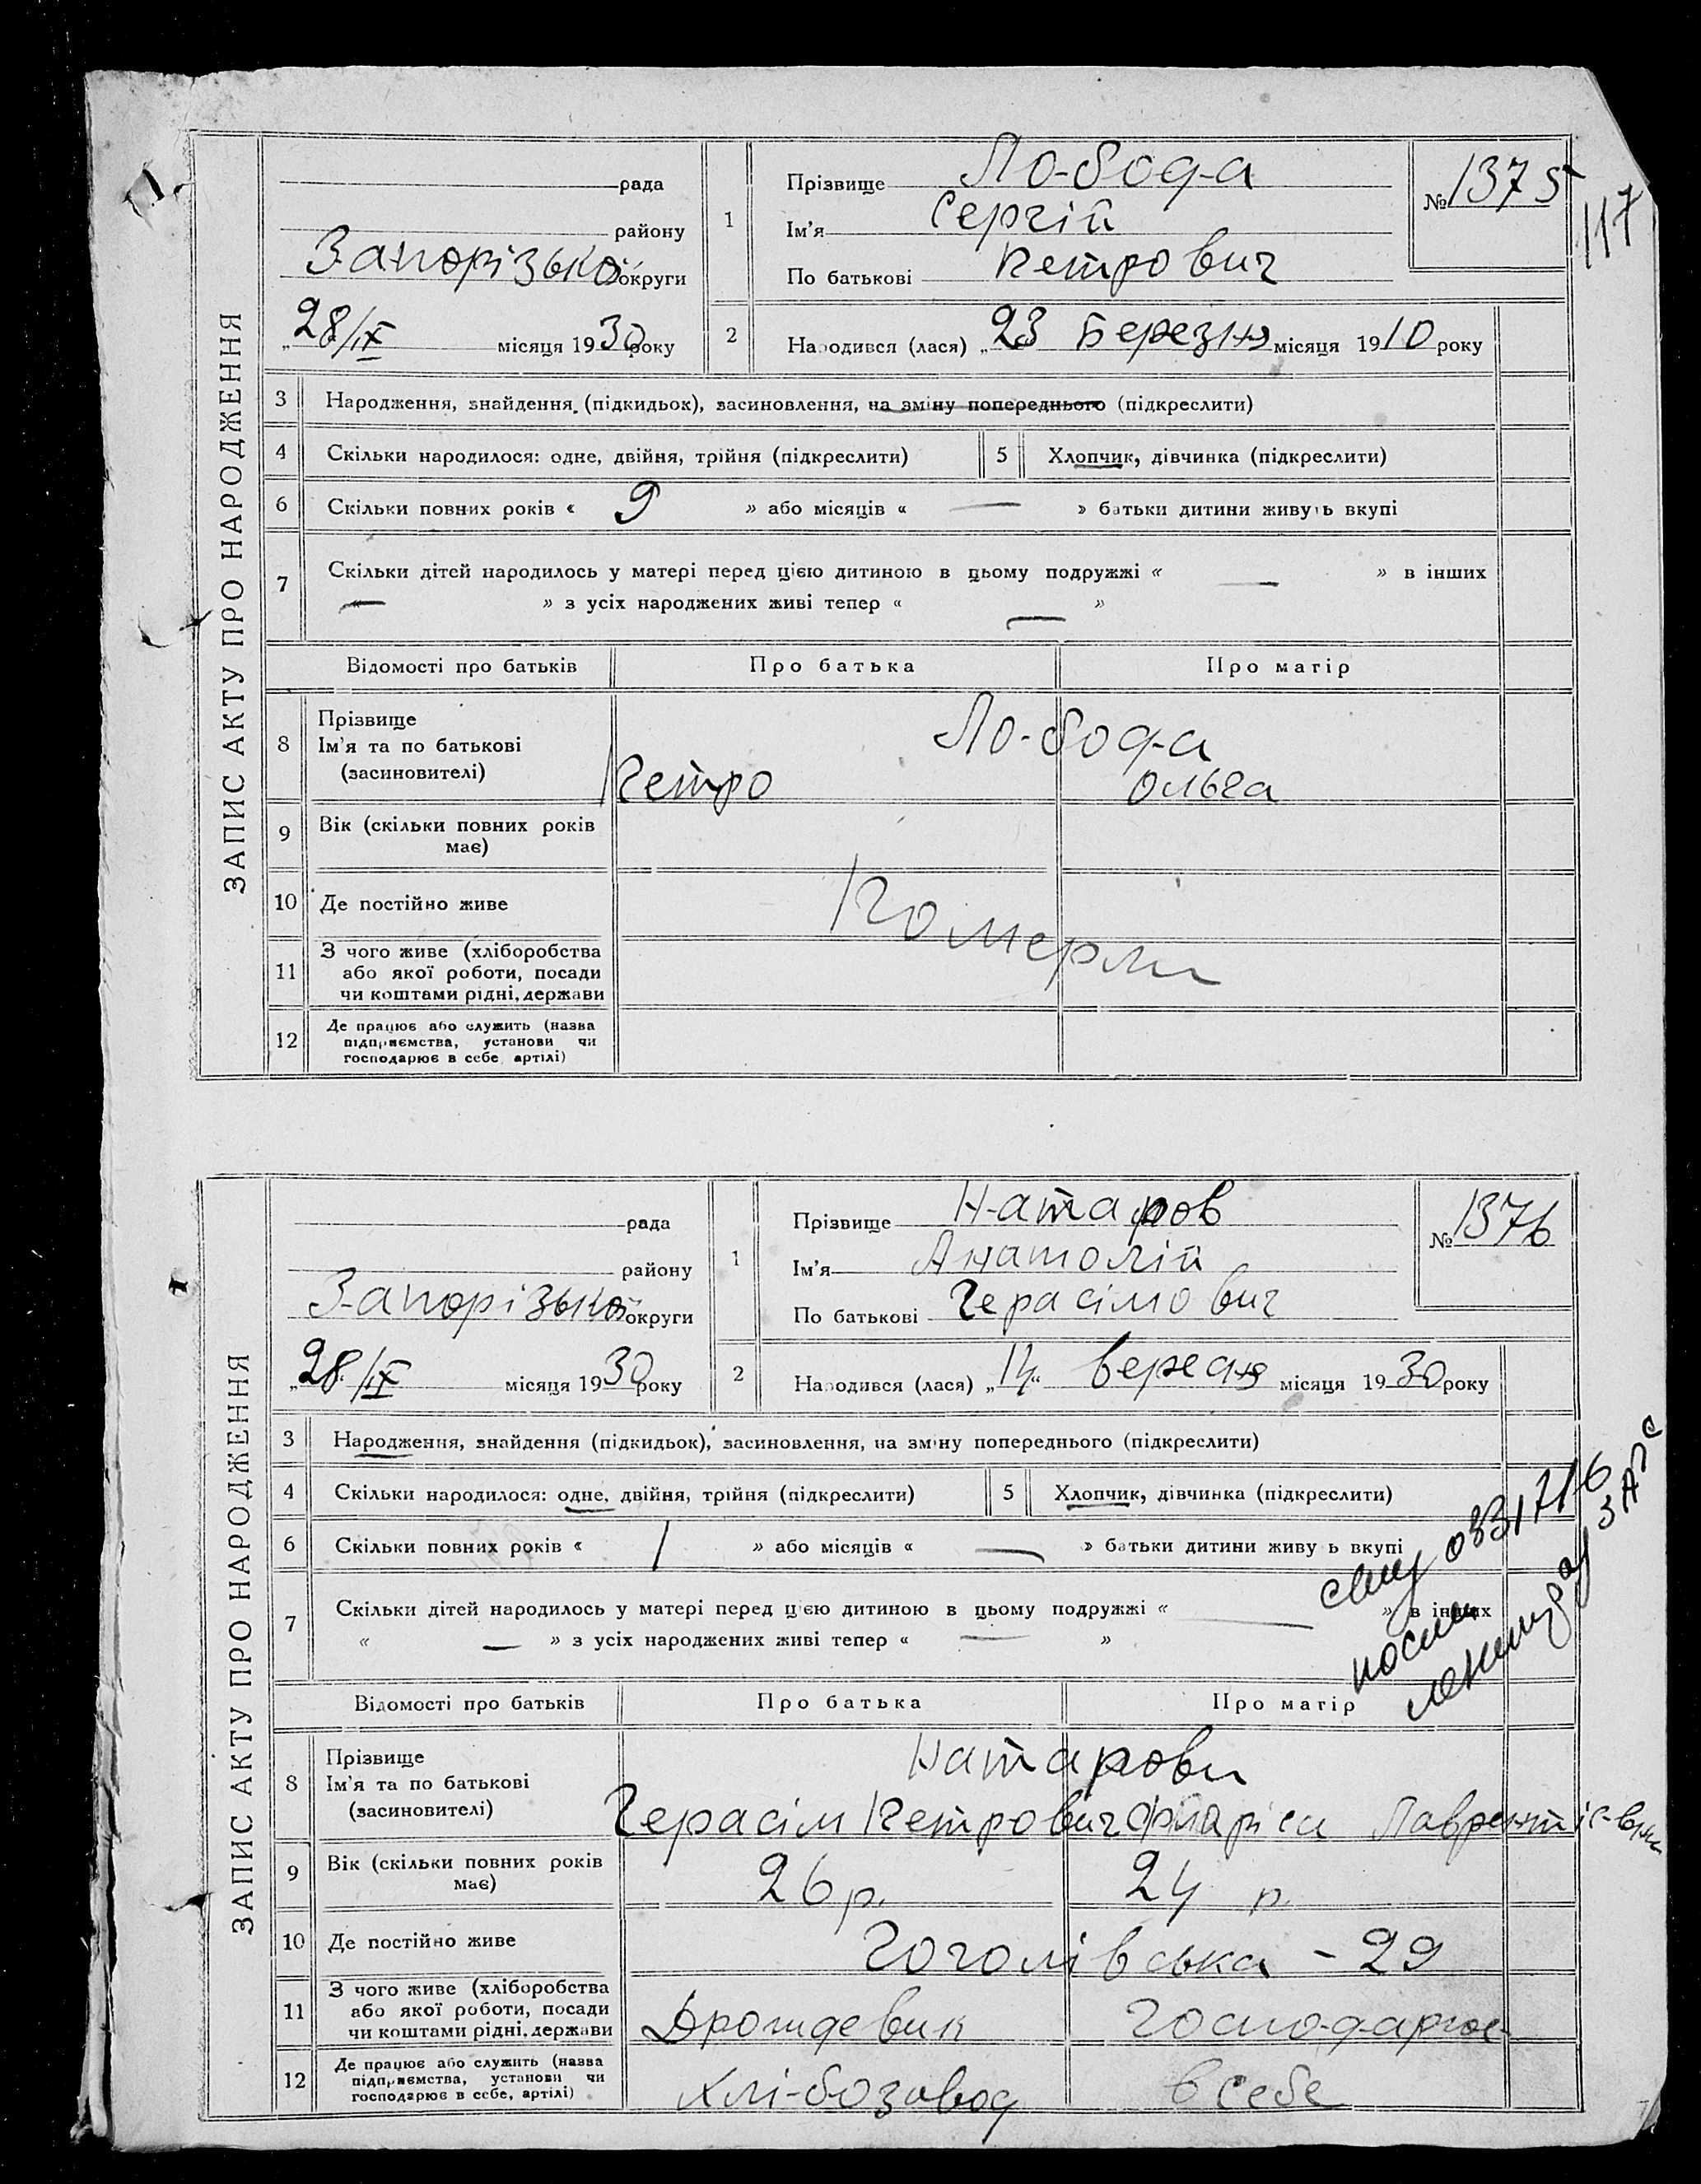 ЗАПИС АКТУ ПРО НАРОДЖЕННЯ
117
рада
району
Запорізької округи
28/IX місяця 1930 року
1 Прізвище Лобода
Ім'я Сергій
По батькові Петрович
№ 1375
2 Народився (лася) „23“ Березня місяця 1910 року
3 Народження, знайдення (підкидьок), засиновлення, на зміну попереднього (підкреслити)
4 Скільки народилося: одне, двійня, трійня (підкреслити) 5 Хлопчик, дівчинка (підкреслити)
6 Скільки повних років « 9 » або місяців « — » батьки дитини живуть вкупі
7 Скільки дітей народилось у матері перед цією дитиною в цьому подружжі « — » в інших
— » з усіх народжених живі тепер « — »
Відомості про батьків Про батька Про матір
8 Прізвище
Ім'я та по батькові
(засиновителі)
Лобода
Петро Ольга
9 Вік (скільки повних років
має)
10 Де постійно живе
Померли
11 З чого живе (хліборобства
або якої роботи, посади
чи коштами рідні, держави
12 Де працює або служить (назва
підприємства, установи чи
господарює в себе, артілі)
ЗАПИС АКТУ ПРО НАРОДЖЕННЯ
рада
району
Запорізької округи
28/IX місяця 1930 року
1 Прізвище Натаров
Ім'я Анатолій
По батькові Герасімович
№ 1376
2 Народився (лася) „14“ вересня місяця 1930 року
3 Народження, знайдення (підкидьок), засиновлення, на зміну попереднього (підкреслити)
4 Скільки народилося: одне, двійня, трійня (підкреслити) 5 Хлопчик, дівчинка (підкреслити)
6 Скільки повних років « 1 » або місяців « — » батьки дитини живу ь вкупі
7 Скільки дітей народилось у матері перед цією дитиною в цьому подружжі « — » в інших
« — » з усіх народжених живі тепер « — »
0331716
ЗАГС
Відомості про батьків Про батька Про матір
8 Прізвище
Ім'я та по батькові
(засиновителі)
Натарови
Герасім Петрович Лаврентієвна
9 Вік (скільки повних років
має)
26 р. 24 р.
10 Де постійно живе
Гоголівська - 29
11 З чого живе (хліборобства
або якої роботи, посади
чи коштами рідні, держави
Дрождевик Господарює
12 Де працює або служить (назва
підприємства, установи чи
господарює в себе, артілі)
Хлібозавод в себе